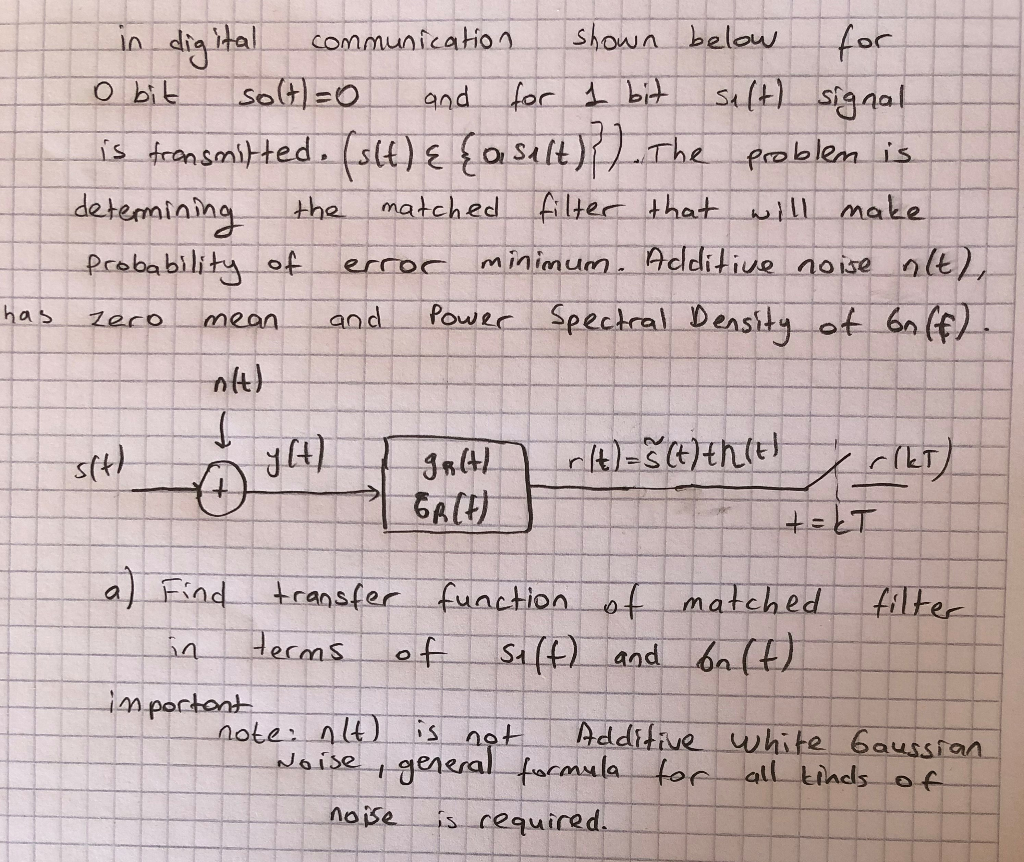 in digital communication shown below for
0 bit so(t)=0 and for 1 bit s1(t) signal
is transmitted. (s(t) ε {0,s1(t)}). The problem is
determining the matched filter that will make
probability of error minimum. Additive noise n(t),
has zero mean and Power Spectral Density of Gn(f).
n(t)
s(t) + y(t) gR(t) r(t)=s̃(t)+n(t) r(kT)
GR(f) t=kT
a) Find transfer function of matched filter
in terms of S1(f) and Gn(f)
important
note: n(t) is not Additive White Gaussian
Noise, general formula for all kinds of
noise is required.